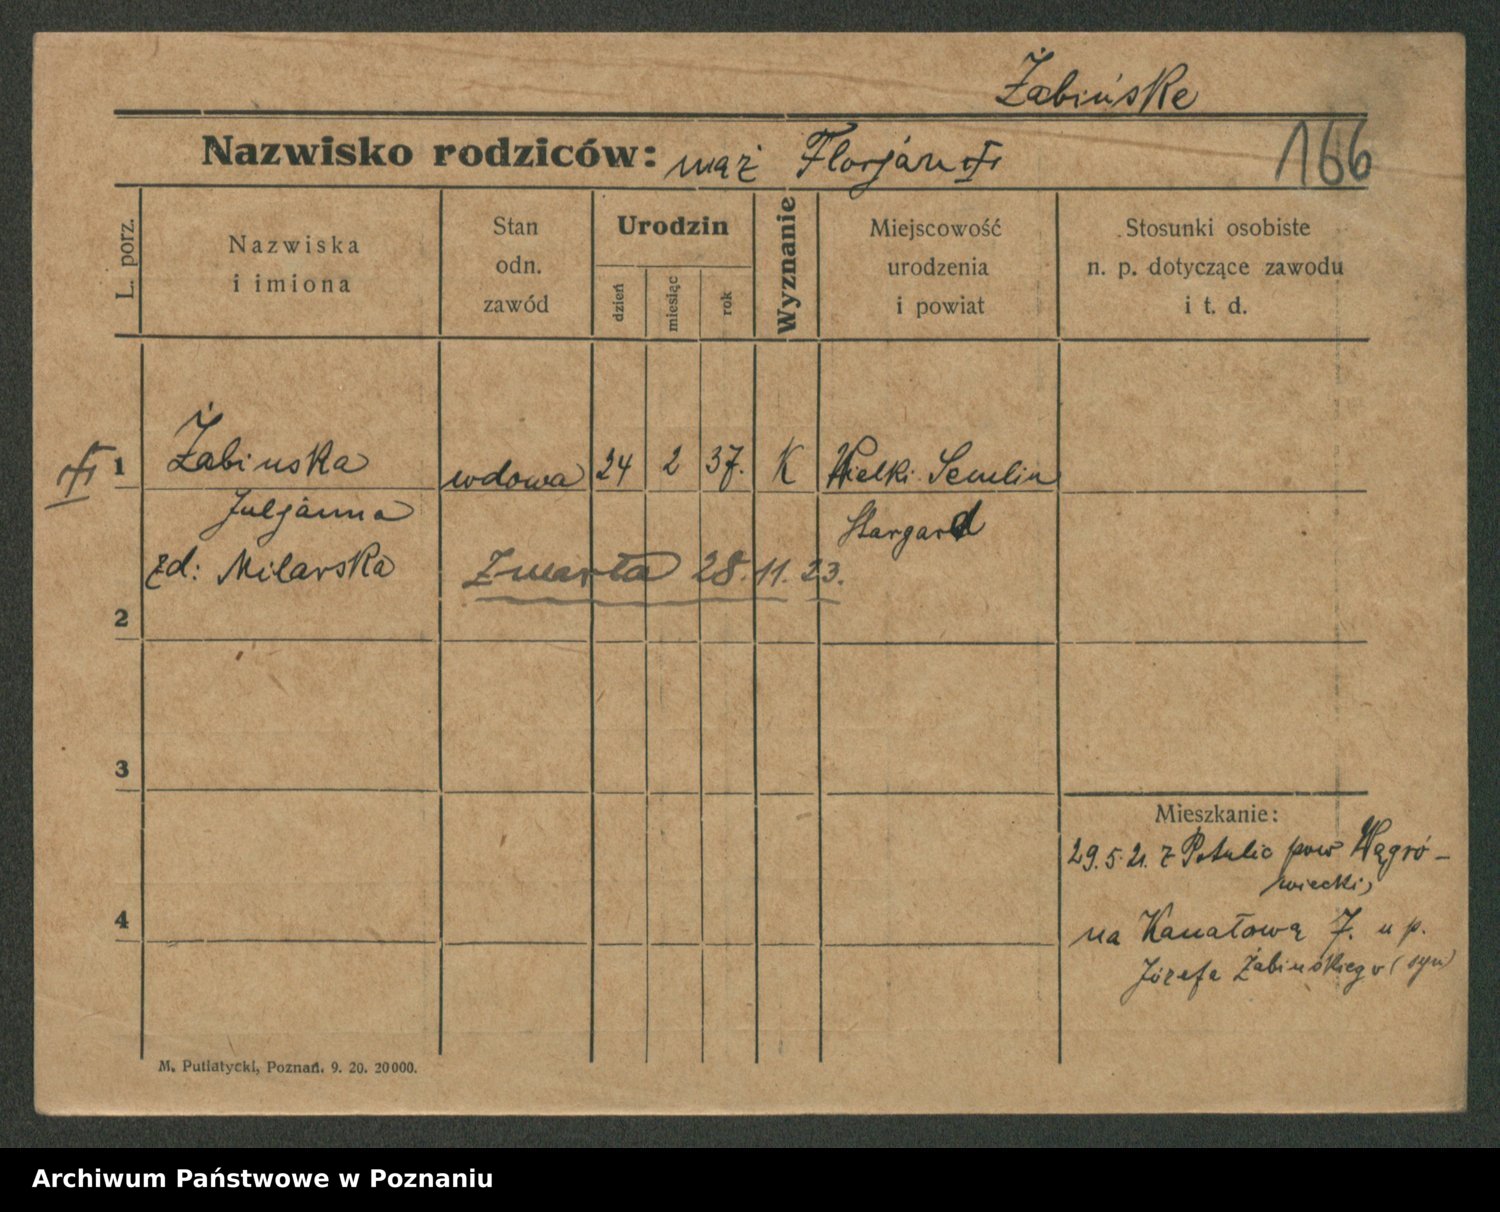 Żabińske
Nazwisko rodziców: mąż Florjan
166
L. porz.
Nazwiska
i imiona
Stan
odn.
zawód
Urodzin
dzień
miesiąc
rok
Wyznanie
Miejscowość
urodzenia
i powiat
Stosunki osobiste
n. p. dotyczące zawodu
i t. d.
1 Żabinska wdowa 24 2 37. K Wielki Semlin
Juljanna Stargard
zd: Milarska Zmarła 28.11.23.
2
3
Mieszkanie:
29.5.21. z Potulic pow Wągró-
wiecki,
4
na Kanałową 7. u p.
Józefa Żabińskiego (syn)
M. Putiatycki, Poznań. 9. 20. 20000.
Archiwum Państwowe w Poznaniu